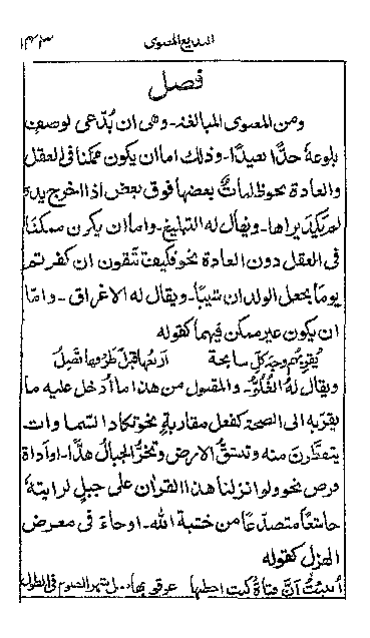 البديع المعنوى ١٤٣
فصل
ومن المعنوى المبالغة۔ وهى ان يُدّعى لوصفٍ
بلوغهُ حدًّا بعيدًا۔ وذلك اما ان يكون ممكنا فى العقل
والعادة نحو ظلمات بعضها فوق بعض اذا اخرج يده
لم يكد يراها۔ ويقال له التبليغ۔ واما ان يكون ممكنًا
فى العقل دون العادة نحو فكيف تتقون ان كفرتم
يوما يجعل الولدان شيبًا۔ ويقال له الاغراق ۔ وامّا
ان يكون غير ممكن فيهما كقوله
وجه كل سابحة اربعها قبل طرفها تصل
ويقال له الغُلُوّ۔ والمقبول من هذا ما أدخل عليه ما
يقرّبه الى الصحة كفعل مقاربةٍ نحو تكاد السّماوات
يتفطّرن منه وتنشقّ الارض وتخرّ الجبال هدًّا۔ او أداة
فرض نحو ولو انزلنا هذا القرآن على جبلٍ لرايتهٗ
خاشعًا متصدّعًا من خشية الله۔ او جاء فى معرض
الهزل كقوله
أنبئتُ أنّ فتاةً كنت اخطبها عرقوبها مثل شهر الصوم فى الطول